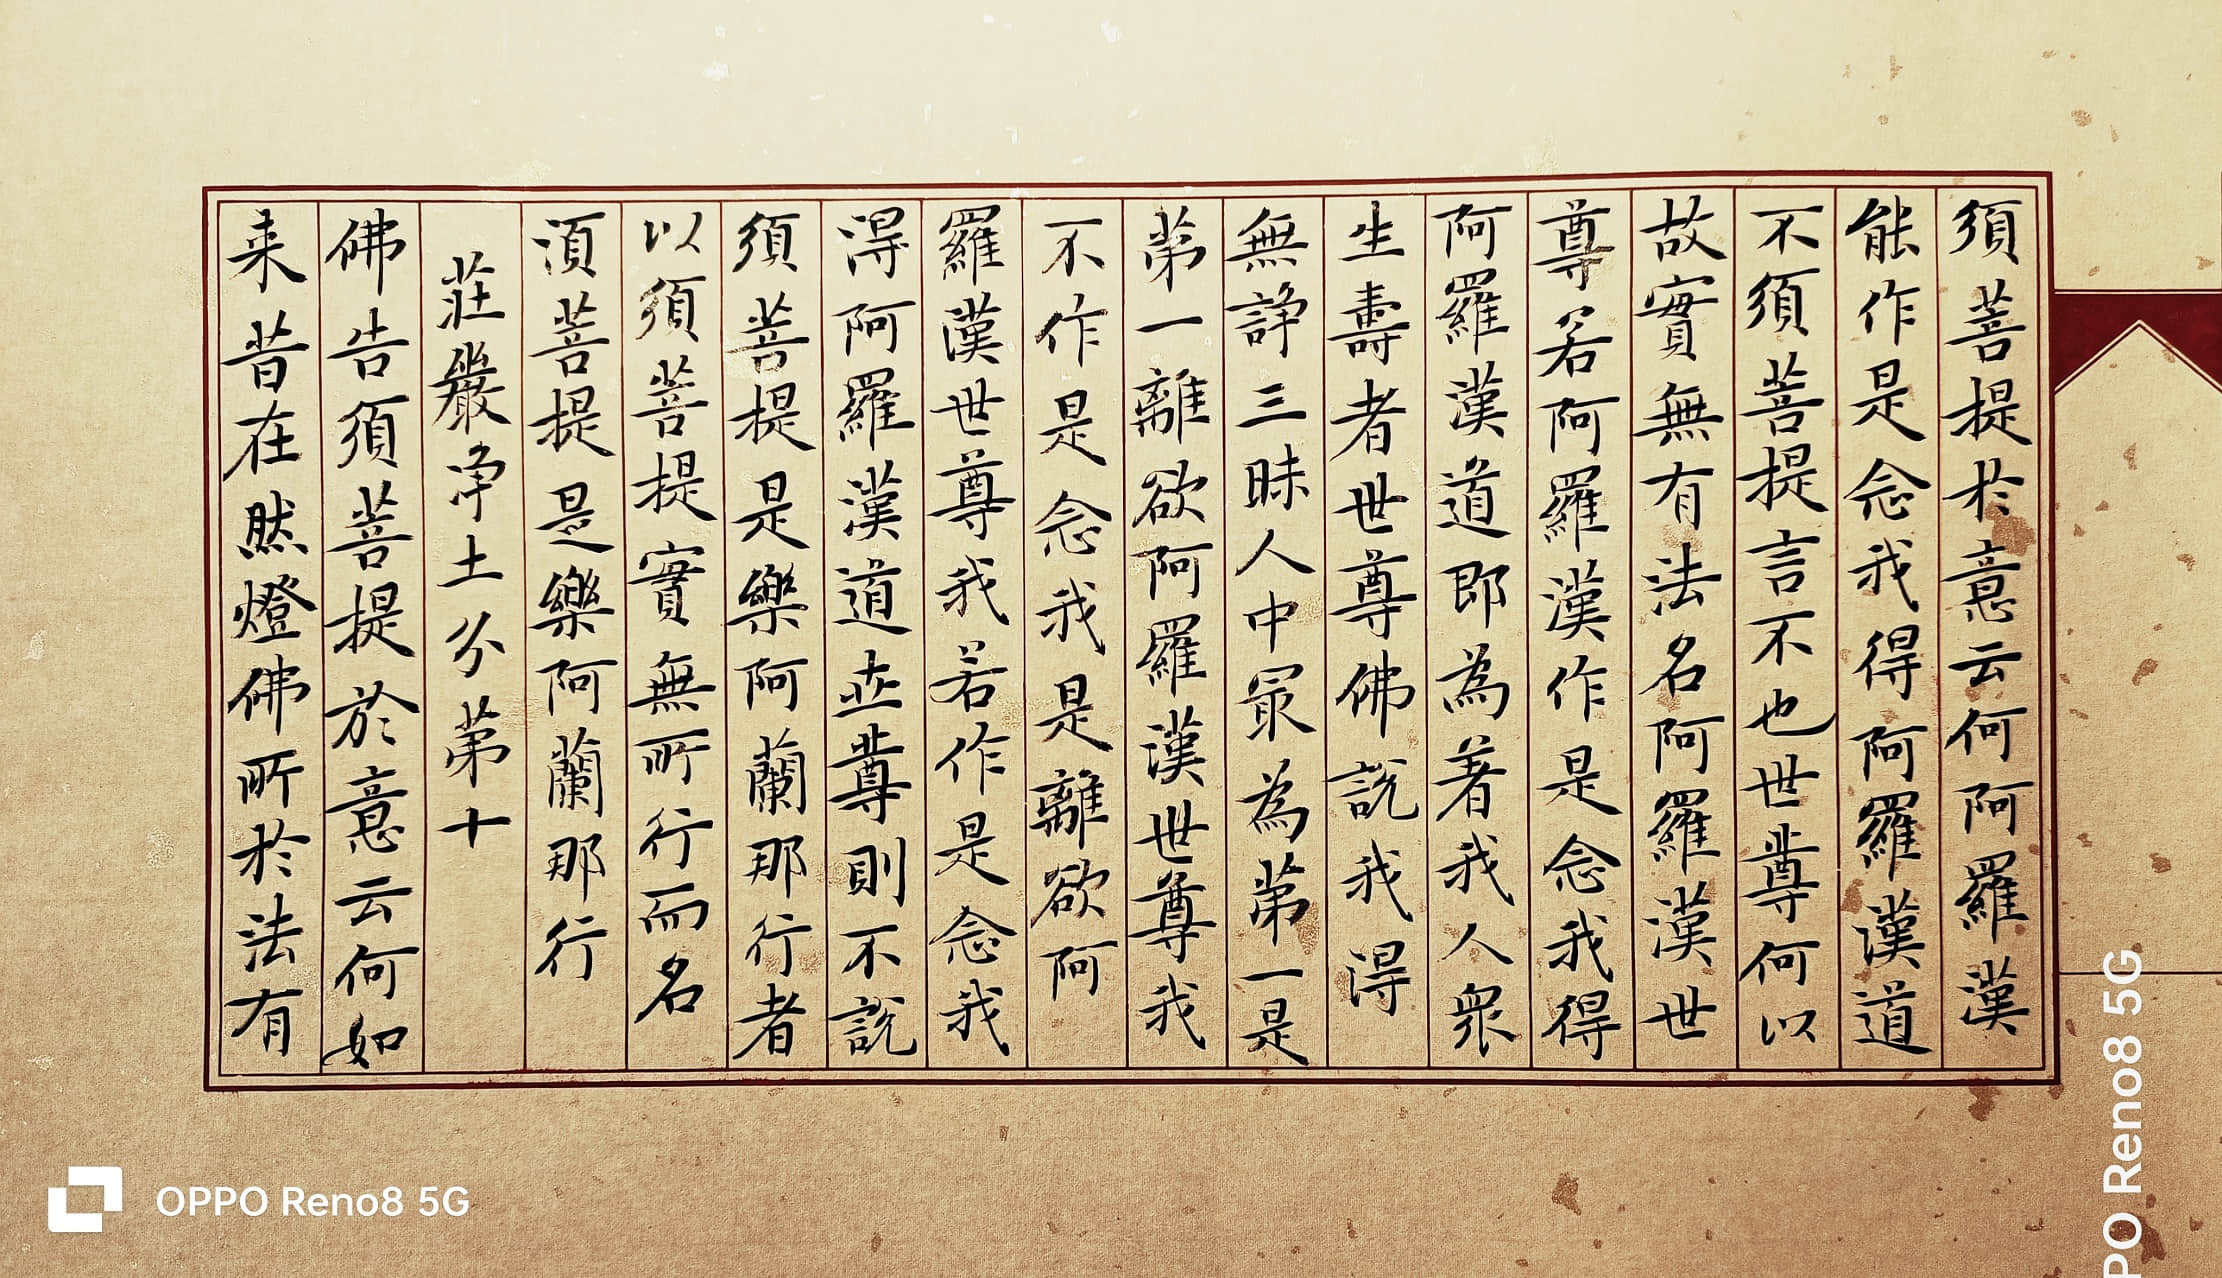 須菩提於意云何阿羅漢
能作是念我得阿羅漢道
不須菩提言不也世尊何以
故實無有法名阿羅漢世
尊若阿羅漢作是念我得
阿羅漢道即為著我人衆
生壽者世尊佛說我得
無諍三昧人中最為第一是
第一離欲阿羅漢世尊我
不作是念我是離欲阿
羅漢世尊我若作是念我
得阿羅漢道世尊則不說
須菩提是樂阿蘭那行者
以須菩提實無所行而名
須菩提是樂阿蘭那行
莊嚴净土分第十
佛告須菩提於意云何如
来昔在然燈佛所於法有
OPPO Reno8 5G
PO Reno8 5G